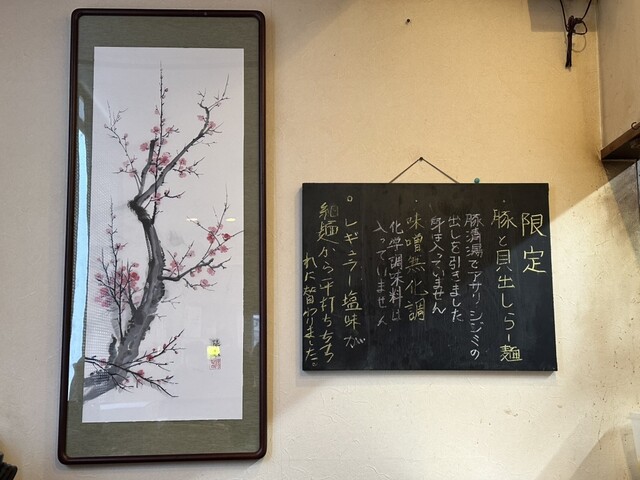 限定
・豚と貝出しらー麺
豚清湯でアサリ、シジミの
出しを引きました
身は入っていません
・味噌無化調
化学調味料は
入っていません
・レギュラー塩味が
細麺から平打ちちぢ
れに替わりました。